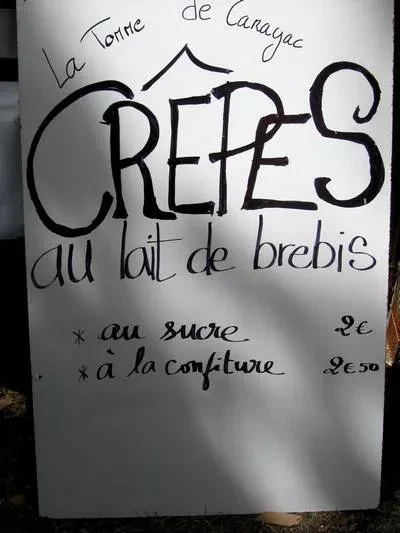 La Tomme de Canayac
CRÊPES
au lait de brebis
* au sucre 2€
* à la confiture 2€50